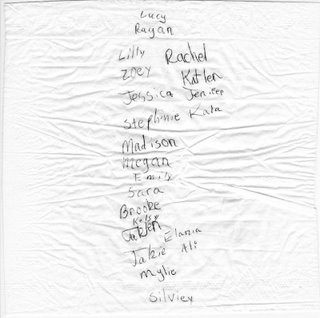 Lucy
Ragan
Lilly Rachel
Zoey Katlen
Jessica Jenifer
Stephinie Kata
Madison
Megan
Emily
Sara
Brooke
Kelsy
Elania
Jakie Ali
Mylie
Silviey